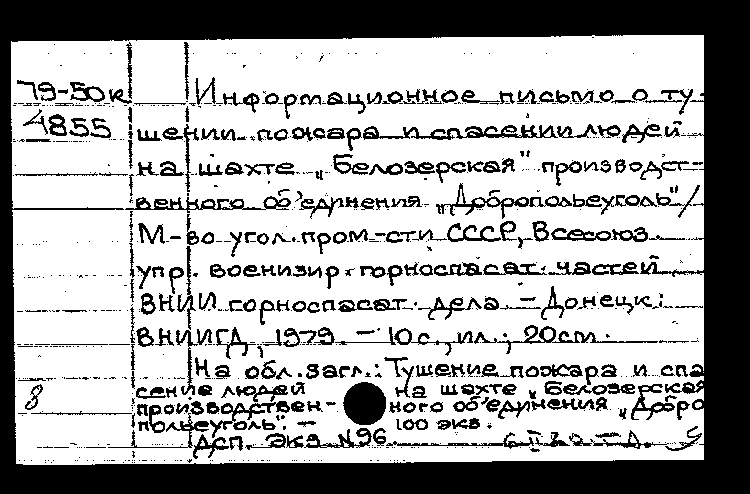 79-50к Информационное письмо о ту-
4855 шении пожара и спасении людей
на шахте „Белозерская" производст-
венного об'единения „Добропольеуголь"/
М-во угол. пром-сти СССР, Всесоюз.
упр. военизир. горноспасат. частей
ВНИИ горноспасат. дела. - Донецк:
ВНИИГД, 1979. - 10 с., ил.; 20 см.
На обл. загл.: Тушение пожара и спа
8 сение людей на шахте „Белозерская
производствен- ного об'единения „Добро
польеуголь". - 100 экз.
ДСП. Экз N96.